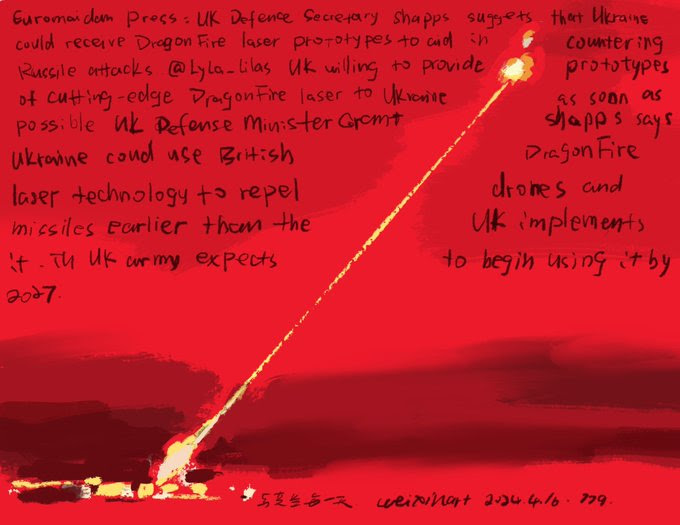 Euromaidan Press: UK Defence Secretary Shapps suggests that Ukraine
could receive DragonFire laser prototypes to aid in countering
Russile attacks @LyLa_lilas UK willing to provide prototypes
of cutting-edge DragonFire laser to Ukraine as soon as
possible UK Defense Minister Grant Shapps says
Ukraine coud use British DragonFire
laser technology to repel drones and
missiles earlier than the UK implements
it. Th UK army expects to begin using it by
2027.
2024.4.16. 779.